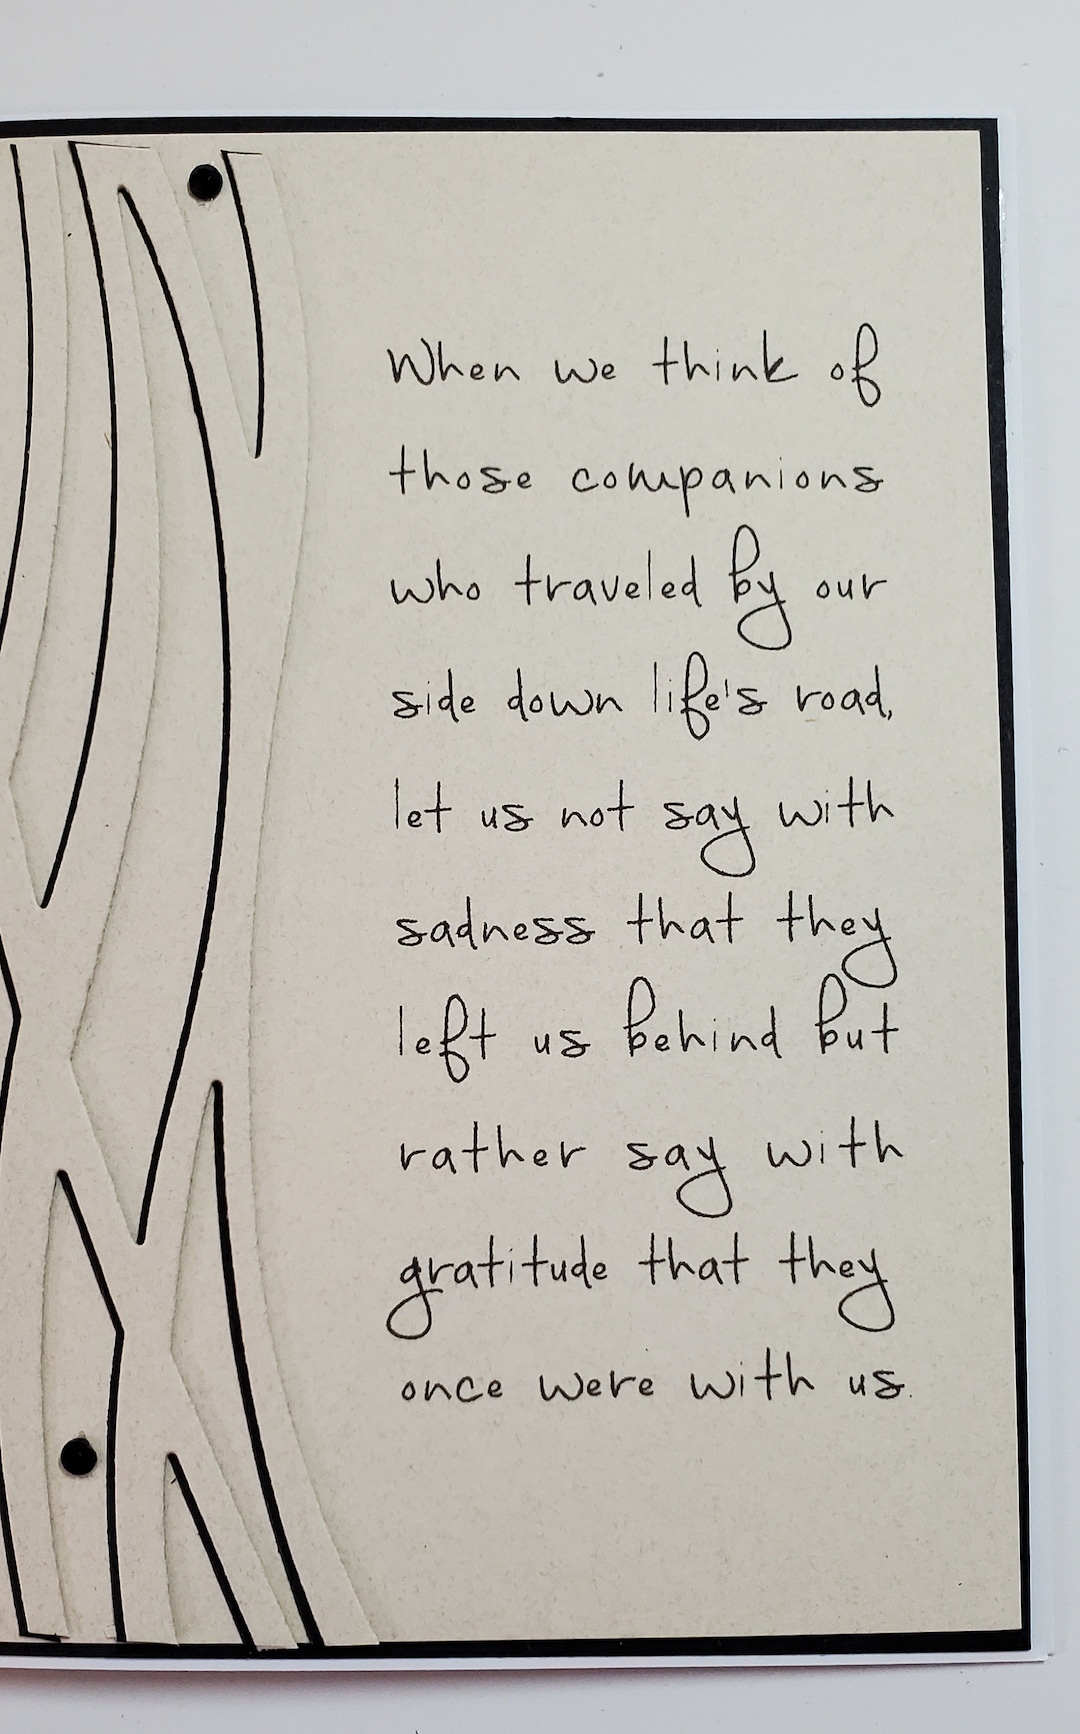 When we think of
those companions
who traveled by our
side down life's road,
let us not say with
sadness that they
left us behind but
rather say with
gratitude that they
once were with us.